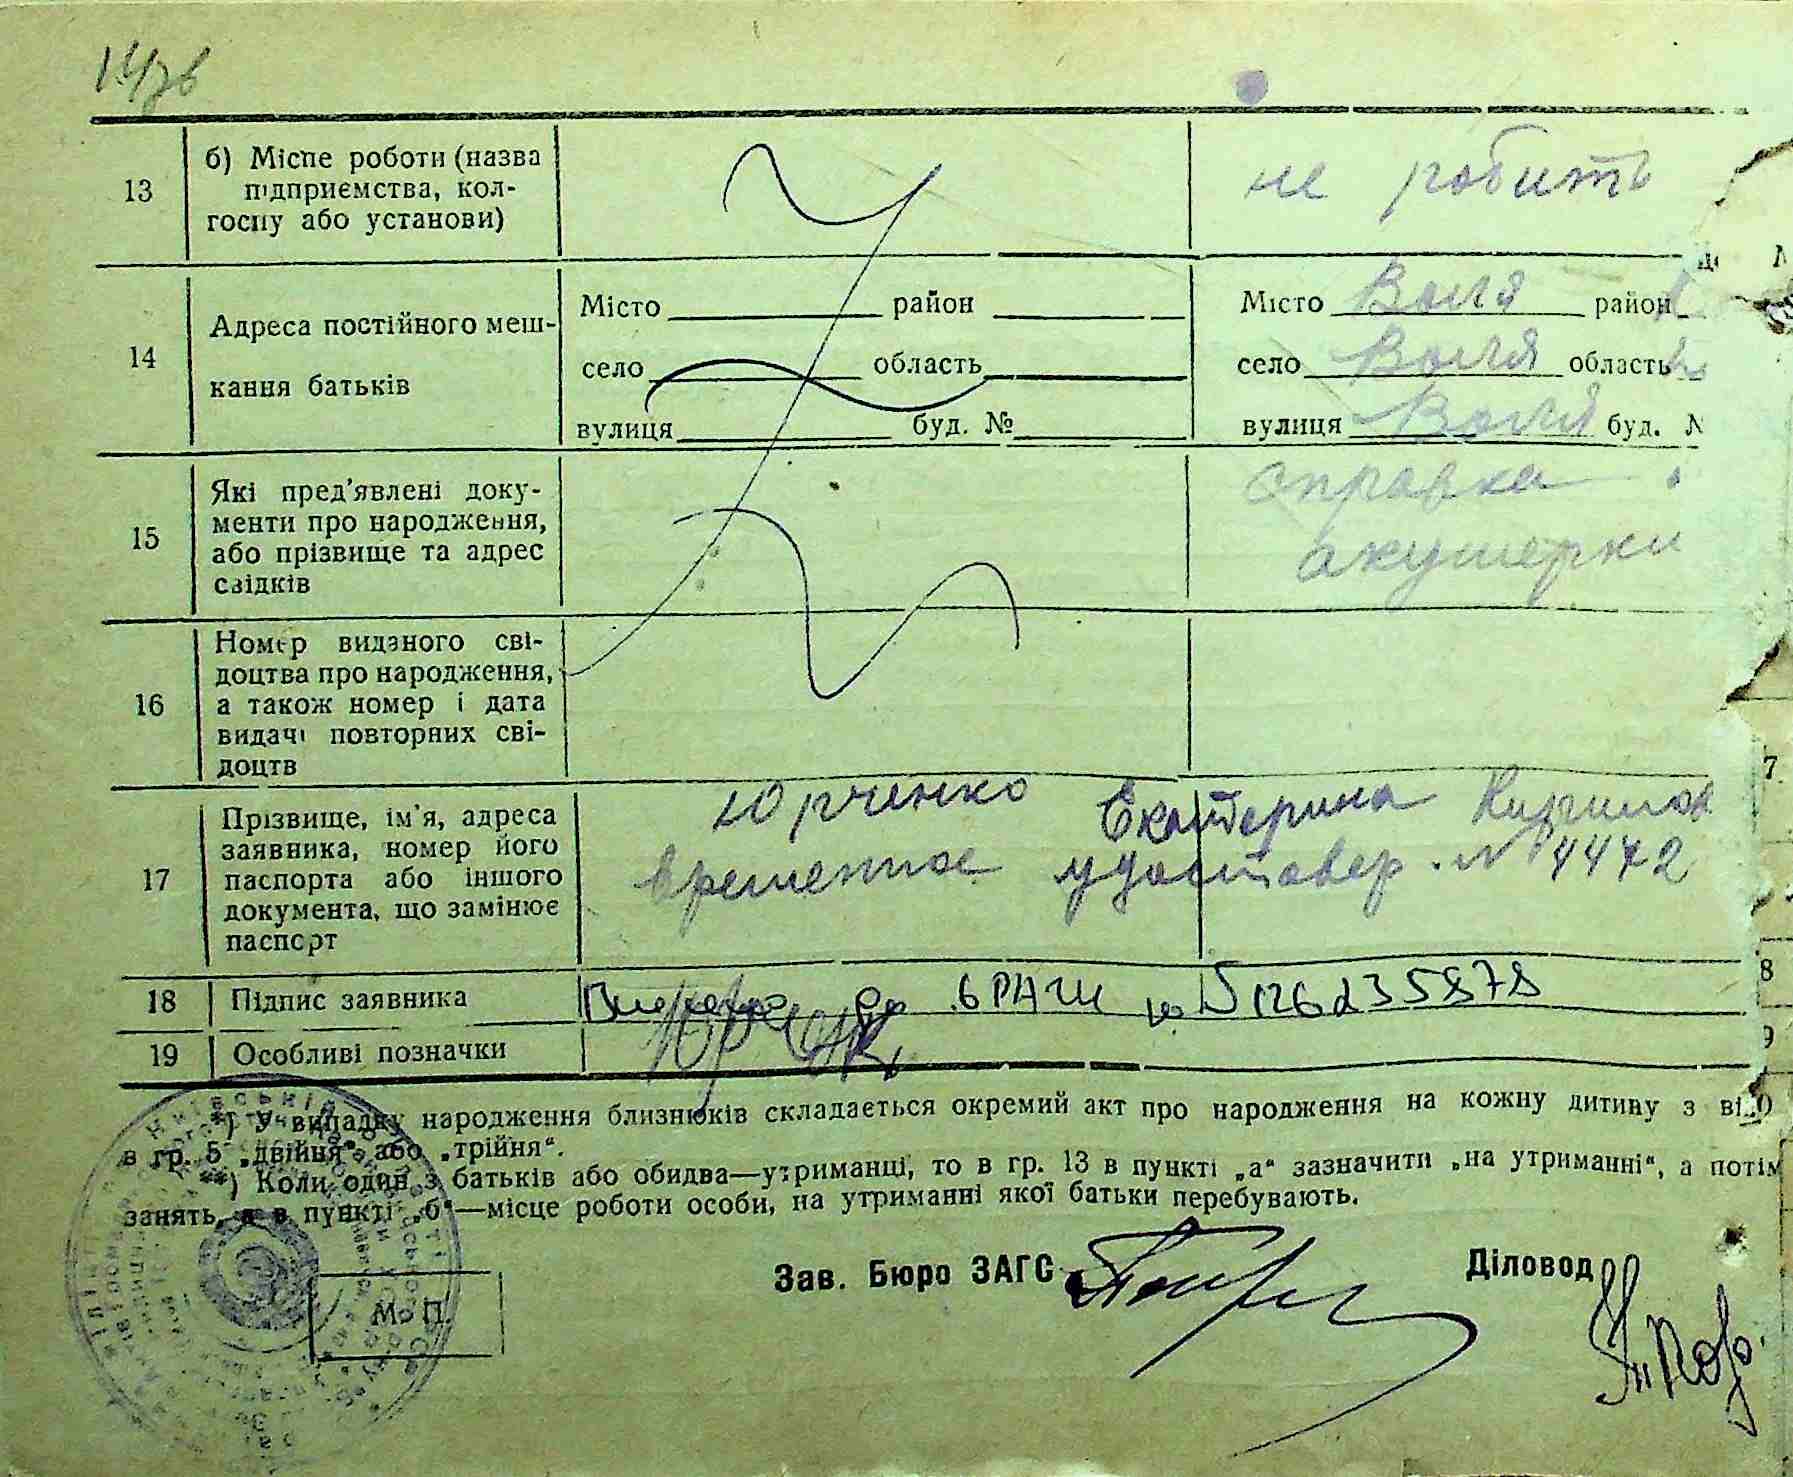 13 б) Місце роботи (назва
підприємства, кол-
госпу або установи)
не робить
14 Адреса постійного меш-
кання батьків
Місто район
село область
вулиця буд. №
Місто Воля район
село Воля область
вулиця Воля буд. №
15 Які пред'явлені доку-
менти про народження,
або прізвище та адрес
свідків
справка
акушерки
16 Номер виданого сві-
доцтва про народження,
а також номер і дата
видачі повторних сві-
доцтв
17 Прізвище, ім'я, адреса
заявника, номер його
паспорта або іншого
документа, що замінює
паспорт
Юрченко Екатерина
временное удостовер. N 4472
18 Підпис заявника
19 Особливі позначки
*) У випадку народження близнюків складається окремий акт про народження на кожну дитину з
в гр. 5 „двійня“ або „трійня“.
**) Коли один з батьків або обидва—утриманці, то в гр. 13 в пункті „а“ зазначити „на утриманні“, а потім
занять, а в пункті „б“—місце роботи особи, на утриманні якої батьки перебувають.
Зав. Бюро ЗАГС Діловод
М. П.